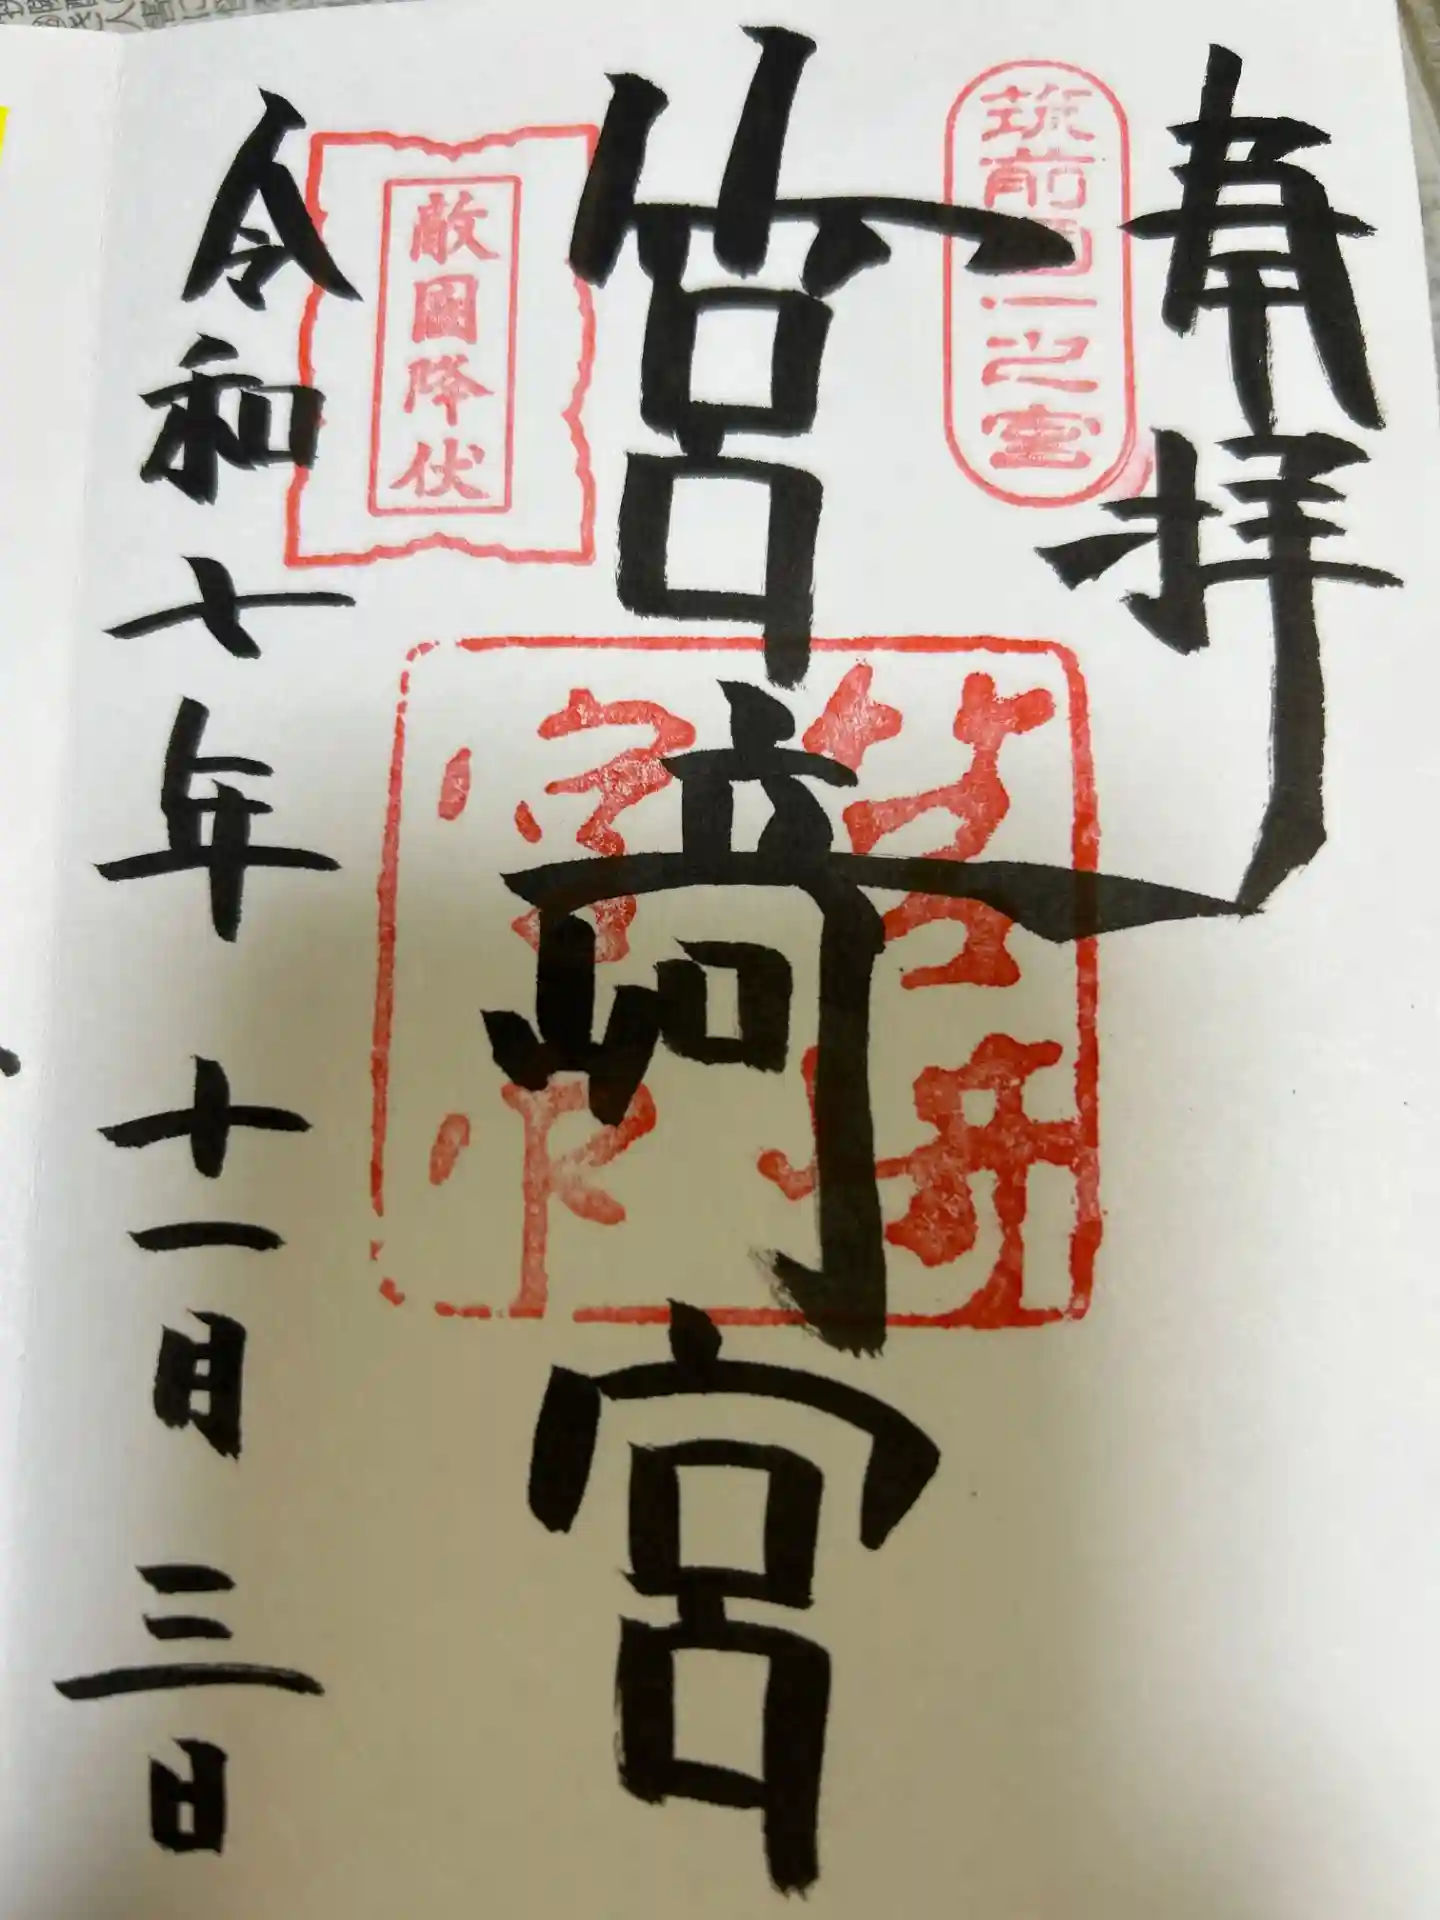 奉拝
筑前國一之宮
筥崎宮
筥崎
宮印
敵國降伏
令和七年十一月三日